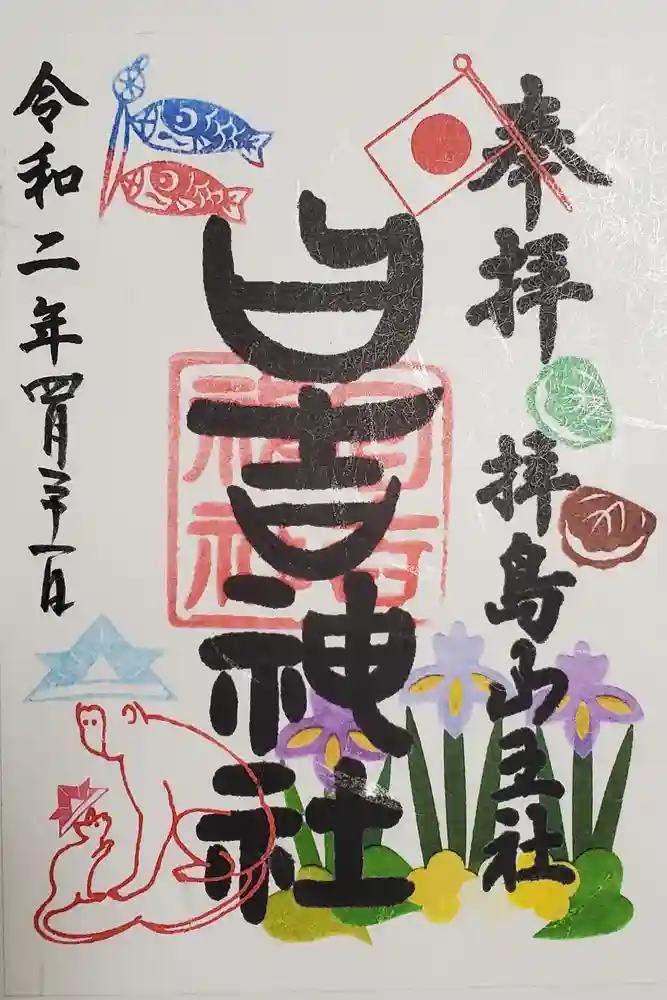 奉拝
拝島山王社
日吉神社
日吉
神社
令和二年四月二十一日